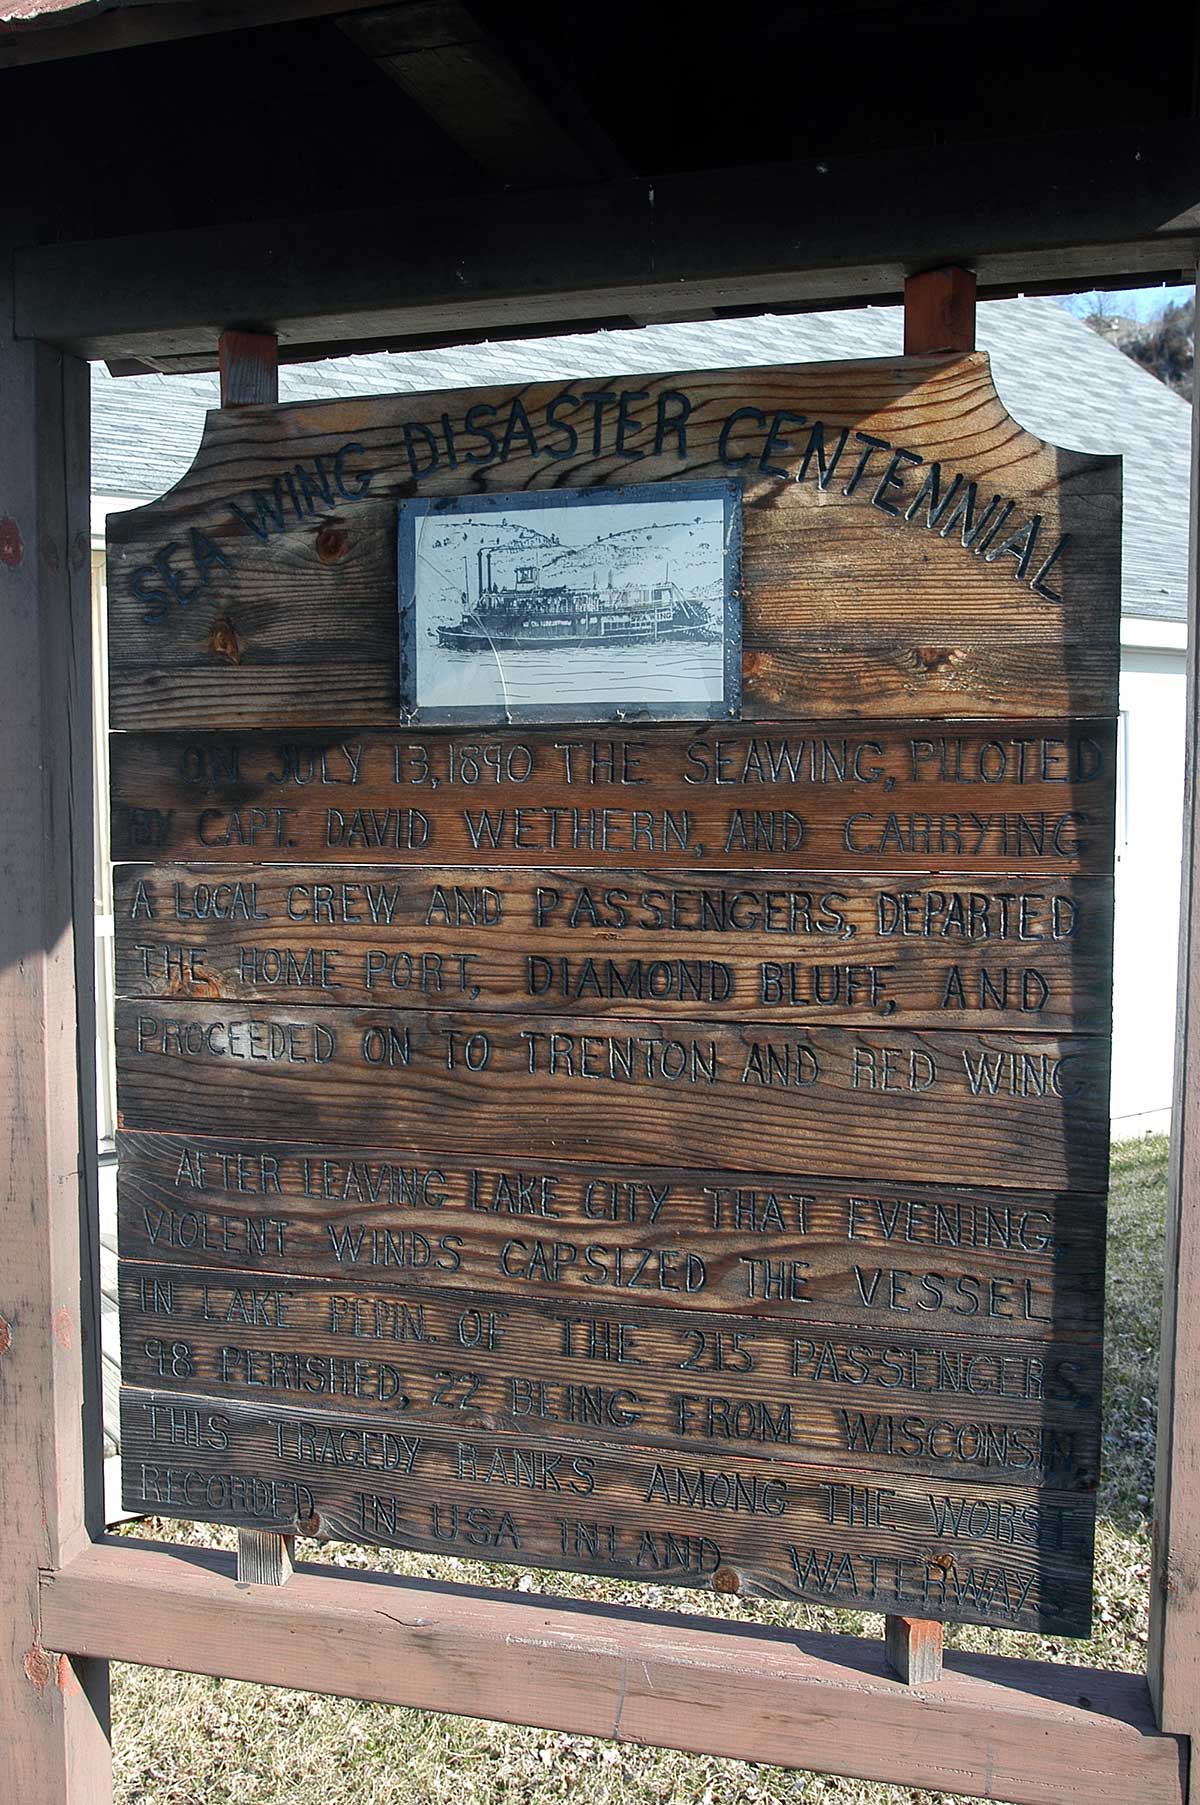 SEA WING DISASTER CENTENNIAL
WING
ON JULY 13, 1890 THE SEAWING, PILOTED
BY CAPT. DAVID WETHERN, AND CARRYING
A LOCAL CREW AND PASSENGERS, DEPARTED
THE HOME PORT, DIAMOND BLUFF, AND
PROCEEDED ON TO TRENTON AND RED WING
AFTER LEAVING LAKE CITY THAT EVENING,
VIOLENT WINDS CAPSIZED THE VESSEL
IN LAKE PEPIN. OF THE 215 PASSENGERS,
98 PERISHED, 22 BEING FROM WISCONSIN.
THIS TRAGEDY RANKS AMONG THE WORST
RECORDED IN USA INLAND WATERWAYS